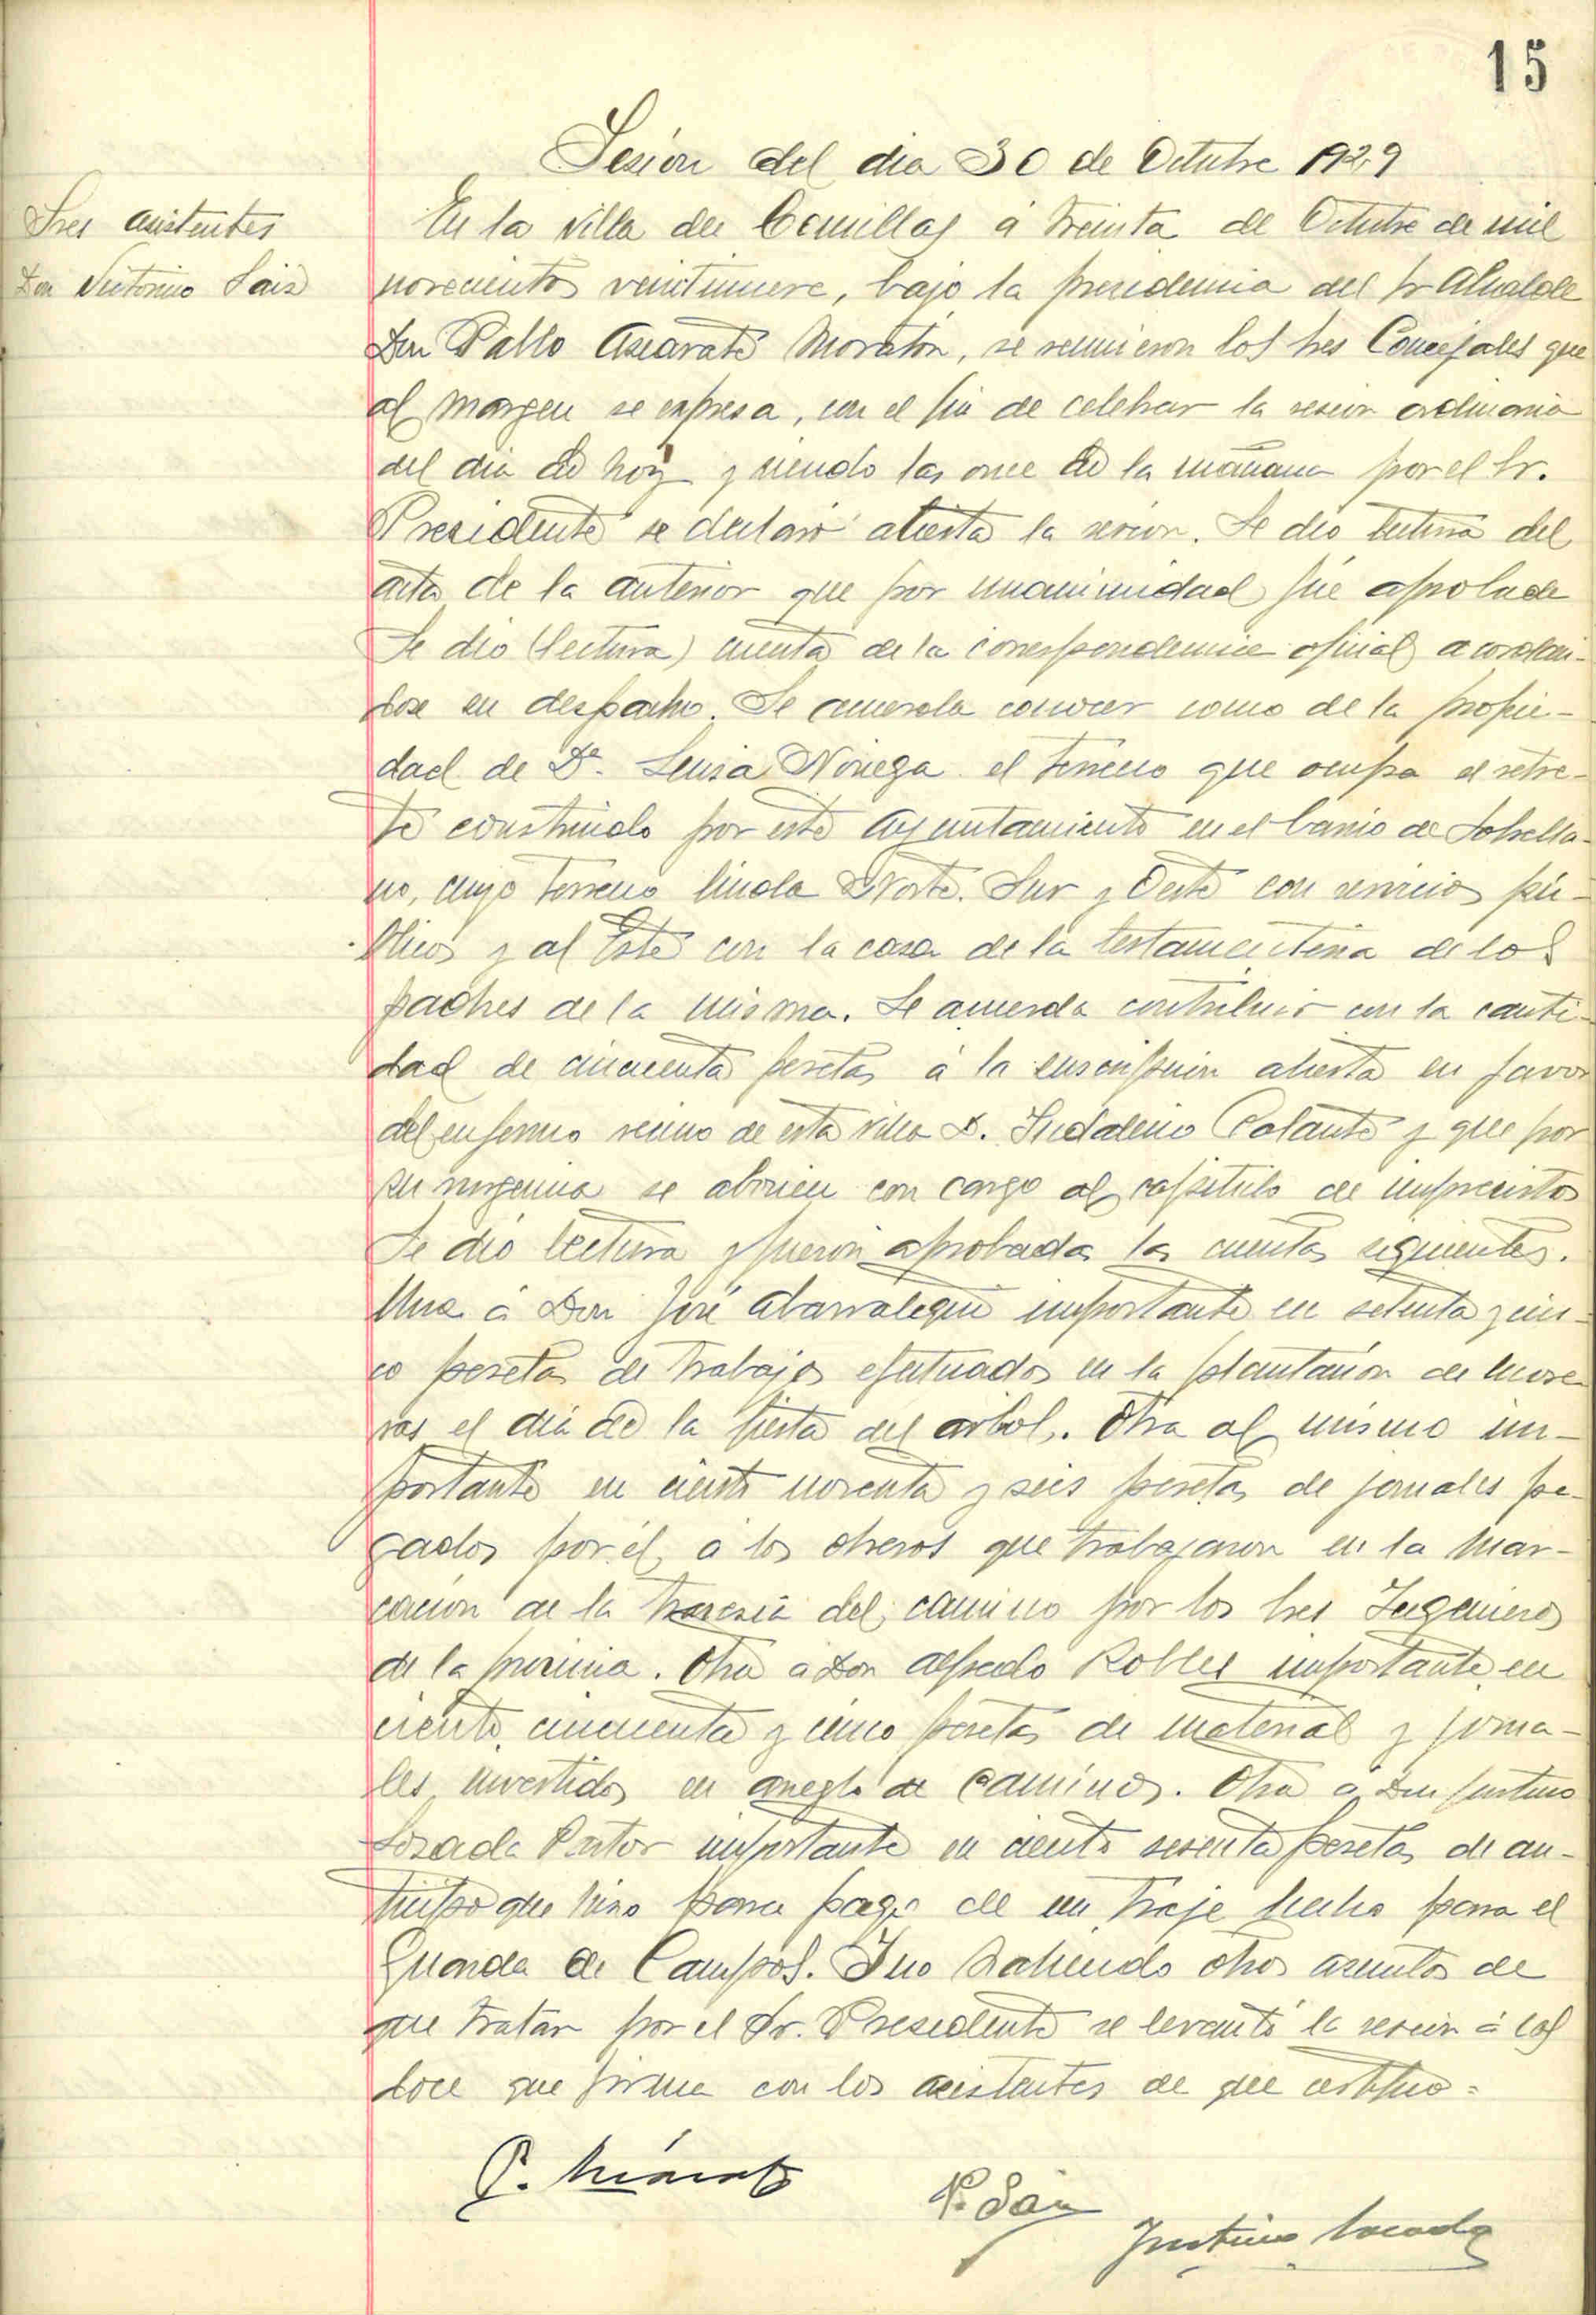 15
Sesión del dia 30 de Octubre 1929
Sres asistentes
Don Victorino Saiz
En la villa de Comillas á treinta de Octubre de mil
novecientos veintinueve, bajo la presidencia del Sr Alcalde
Don Pablo Azcarate Moratón, se reunieron los Sres Concejales que
al margen se expresa, con el fin de celebrar la sesion ordinaria
del dia de hoy y siendo las once de la mañana por el Sr.
Presidente se declaró abierta la sesion. Se dio lectura del
acta de la anterior que por unanimidad fue aprobada
Se dio (lectura) cuenta de la correspondencia oficial acordan-
dose su despacho. Se acuerda conocer como de la propie-
dad de Dª. Luisa Noriega el terreno que ocupa el retre-
te construido por este Ayuntamiento en el barrio de Sobrella-
no, cuyo terreno linda Norte. Sur y Oeste con servicios pú-
blicos y al Este con la casa de la testamentaria de los
padres de la misma. Se acuerda contribuir con la canti-
dad de cincuenta pesetas á la suscripcion abierta en favor
del enfermo vecino de esta villa D. Indalecio Polante y que por
su urgencia se abonen con cargo al capitulo de imprevistos
Se dió lectura y fueron aprobadas las cuentas siguientes.
Una á Don José Abarrategui importante en setenta y cin-
co pesetas de trabajos efectuados en la plantación de more-
ras el dia de la fiesta del arbol. Otra al mismo im-
portante en ciento noventa y seis pesetas de jornales pa-
gados por él, a los obreros que trabajaron en la mar-
cación de la travesía del camino por los Sres Ingenieros
de la provincia. Otra a Don Alfredo Robles importante en
ciento cincuenta y cinco pesetas de material y jorna-
les invertidos en arreglo de caminos. Otra a Don Justino
Losada Pastor importante en ciento sesenta pesetas de an-
ticipo que hizo para pago de un traje hecho para el
Guarda de Campos. Y no habiendo otros asuntos de
que tratar por el Sr. Presidente se levantó la sesion á las
doce que firma con los asistentes de que certifico =
V. Saiz
Justino Losada